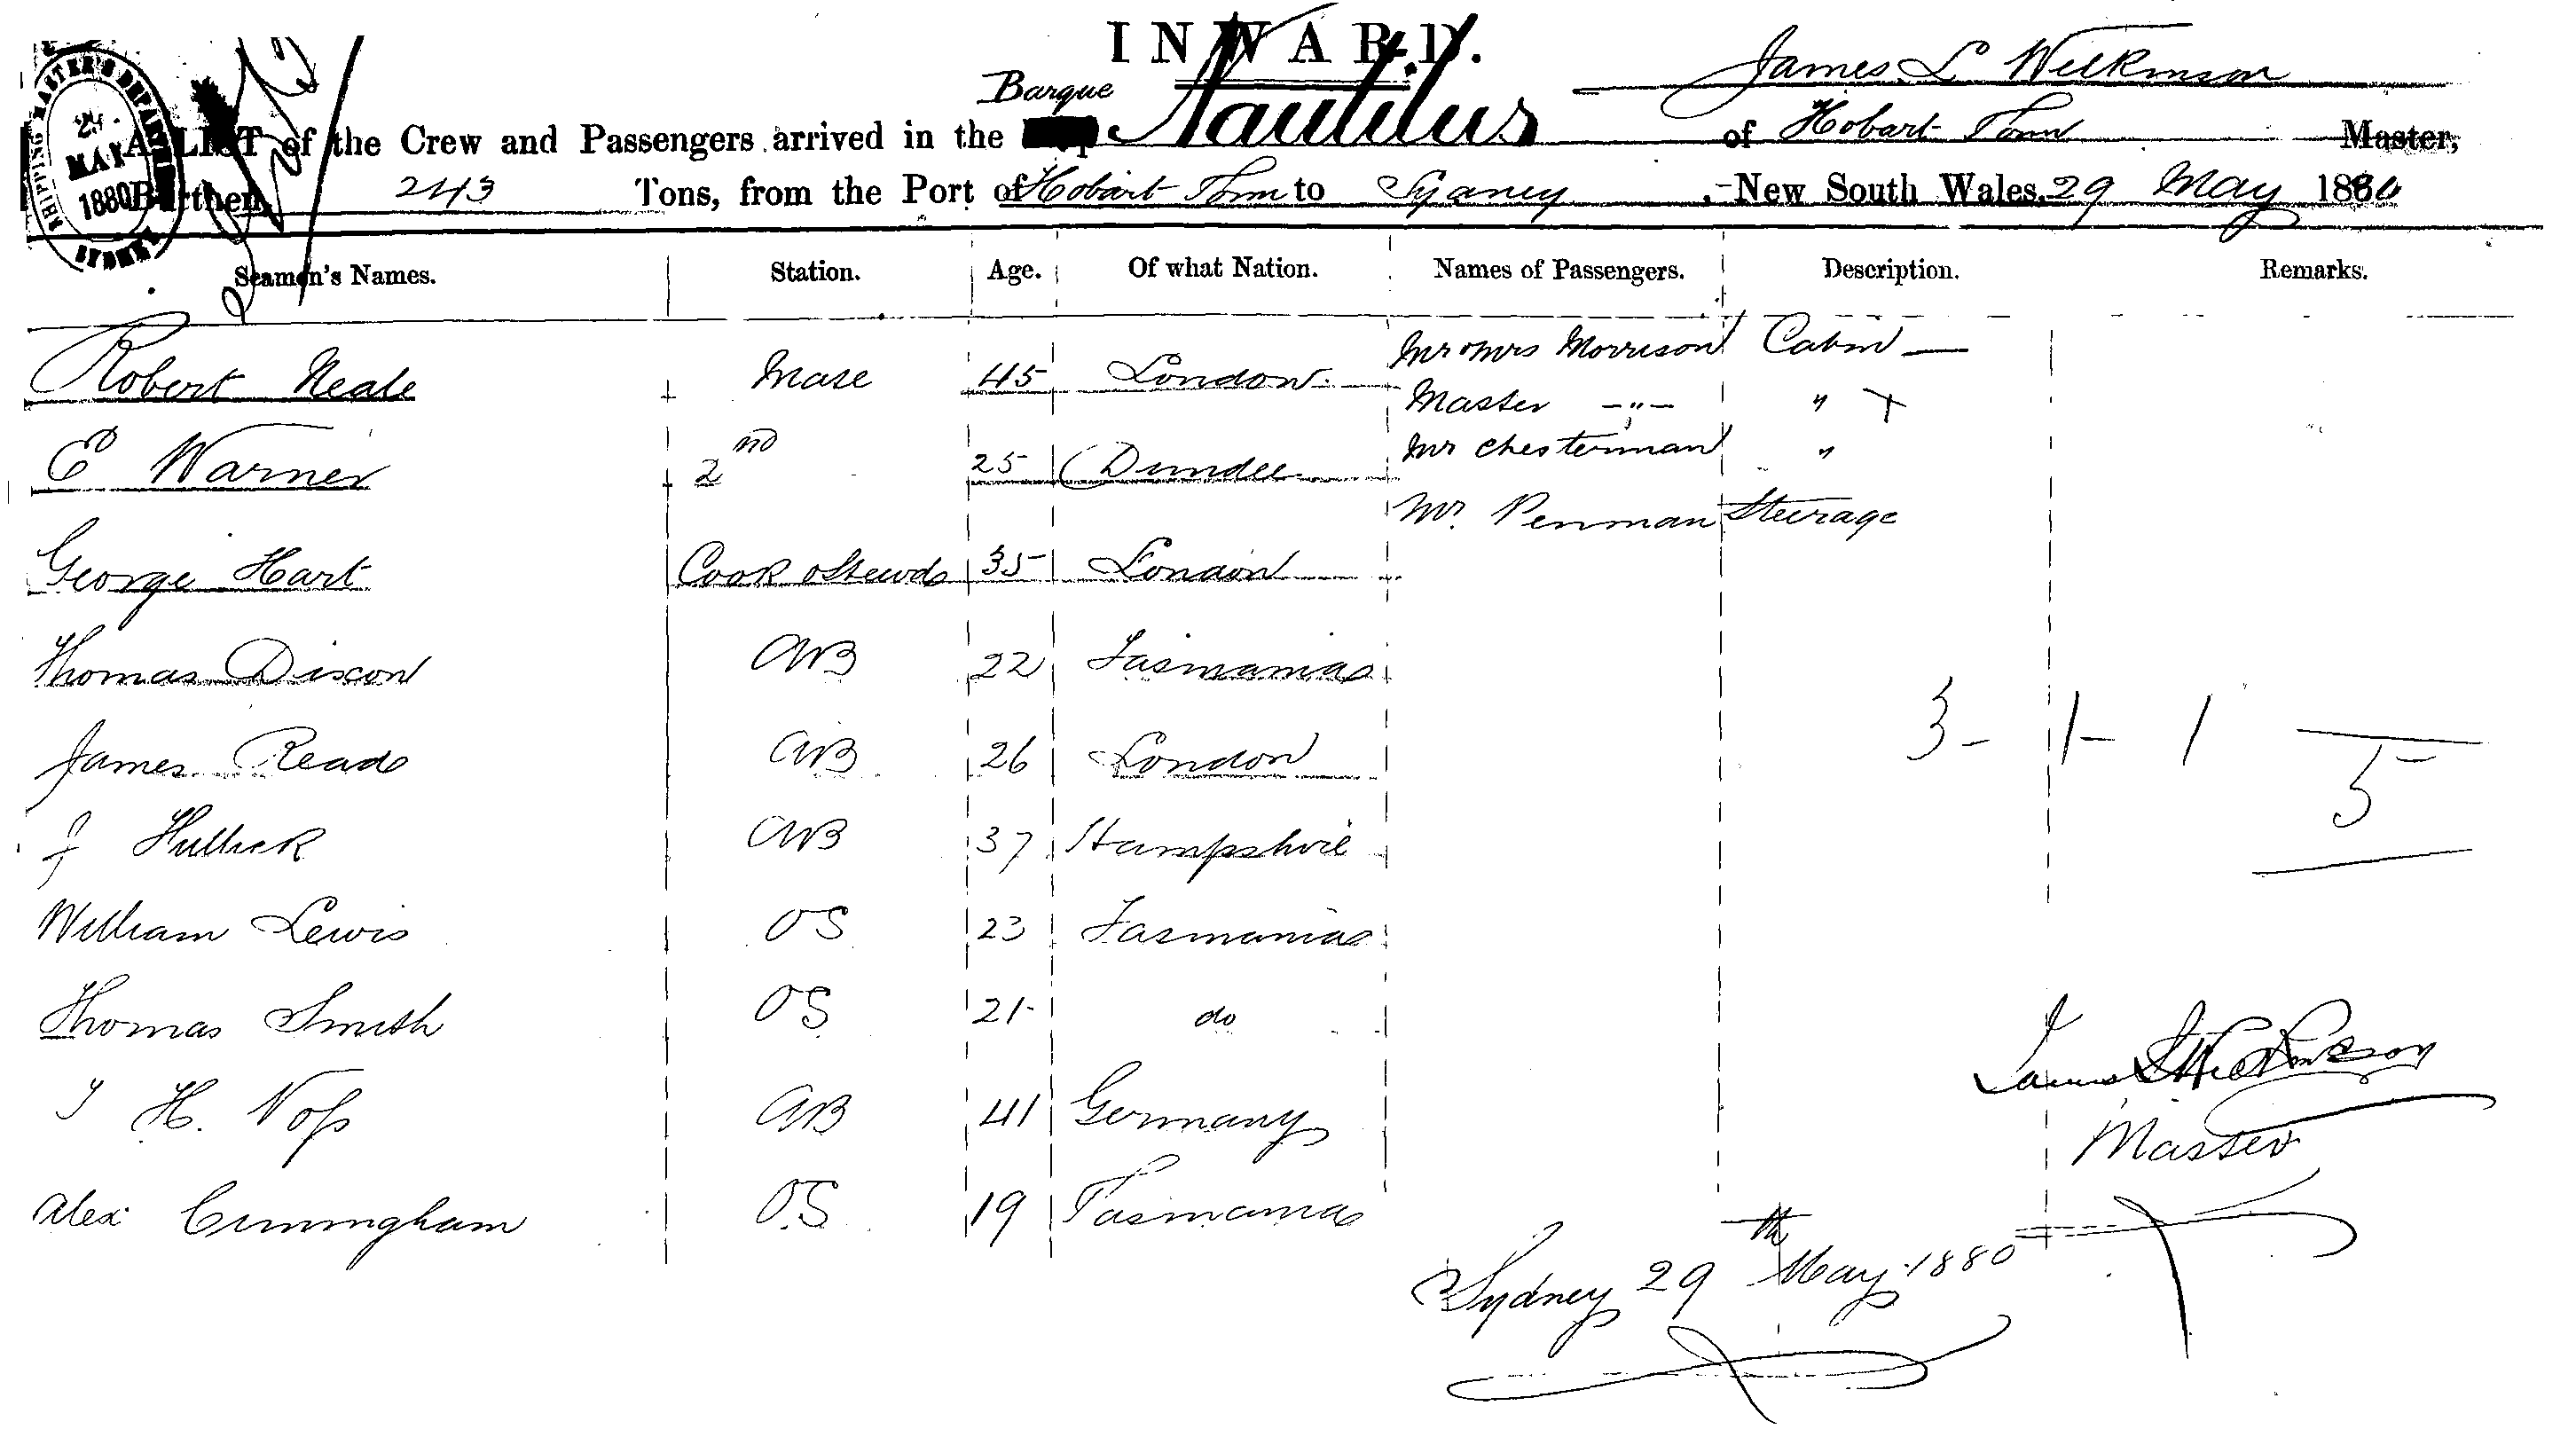 INWARD.
SHIPPING MASTER'S DEPARTMENT SYDNEY
29 MAY 1880
James L Wilkinson
Barque
A LIST of the Crew and Passengers arrived in the Nautilus of Hobart Town Master,
Burthen 243 Tons, from the Port of Hobart Town to Sydney, New South Wales, 29 May 1880
Seamen's Names. Station. Age. Of what Nation. Names of Passengers. Description. Remarks.
Mr & Mrs Morrison Cabin —
Robert Neale Mate 45 London
Master —„— " +
Mr Chesterman "
E Warner 2nd 25 Dundee
Mr. Penman Steerage
George Hart Cook & Stewd 35 London
Thomas Dixon AB 22 Tasmania
James Read AB 26 London
3 - 1 - 1
5
J Hullick AB 37 Hampshire
William Lewis OS 23 Tasmania
Thomas Smith OS 21 do
James L Wilkinson
J H. Voss AB 41 Germany
Master
Alex Cunningham O.S 19 Tasmania
Sydney 29th May 1880